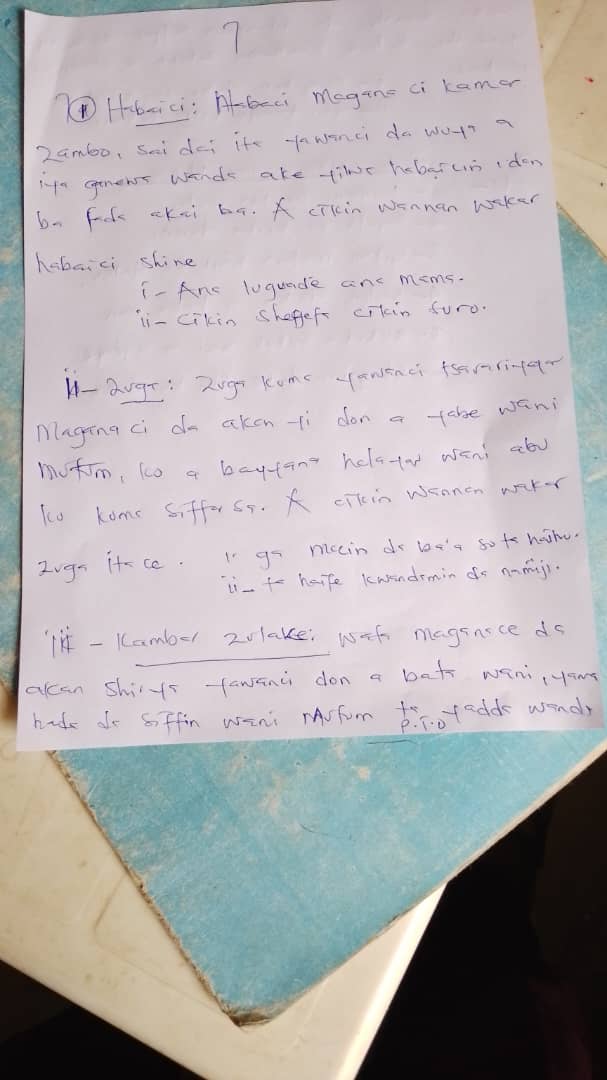 7
i Habaici: Habaci magana ci kamar
Zambo, sai dai ita yawanci da wuya a
iya gane wanda ake yiwa habaicin, don
ba fada akai ba. A cikin wannan wakar
habaici shine
i- Ana luguade ana mama.
ii- Cikin Sheffefa cikin furo.
ii- Zuga: Zuga kuma yawanci
magana ci da akan yi don a yabe wani
mutum, ko a bayyana halayar wani abu
ko kuma siffarsa. A cikin wannan wakar
Zuga ita ce. i. ga macin da ba'a so ta haihu.
ii- ta haife kwandamin da namiji.
iii - Kambar Zulake: Wata maganace da
akan Shirya yawanci don a bata wani, yana
hada da siffin wani mutum ta yadda wanda
P.T.O